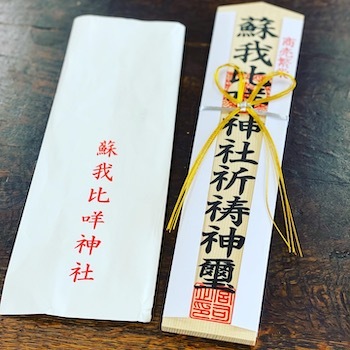 蘇我比咩神社
蘇我比咩神社祈祷神璽